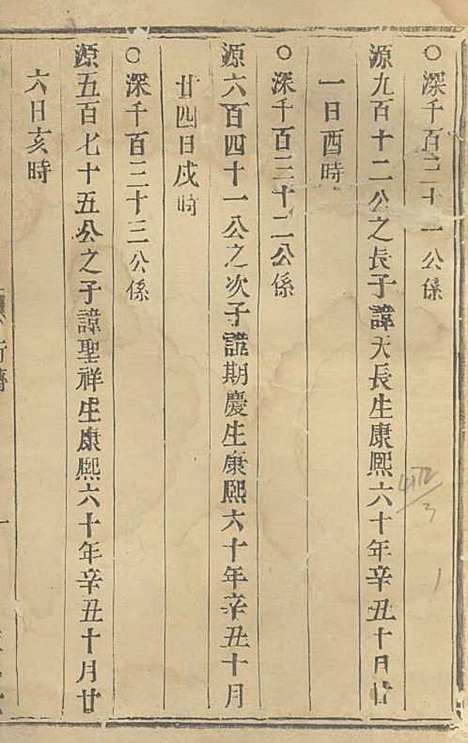 ○深千百三十一公係
源九百十二公之長子諱天長生康熙六十年辛丑十月廿
一日酉時
○深千百三十二公係
源六百四十一公之次子諱期慶生康熙六十年辛丑十月
廿四日戌時
○深千百三十三公係
源五百七十五公之子諱聖祥生康熙六十年辛丑十月廿
六日亥時